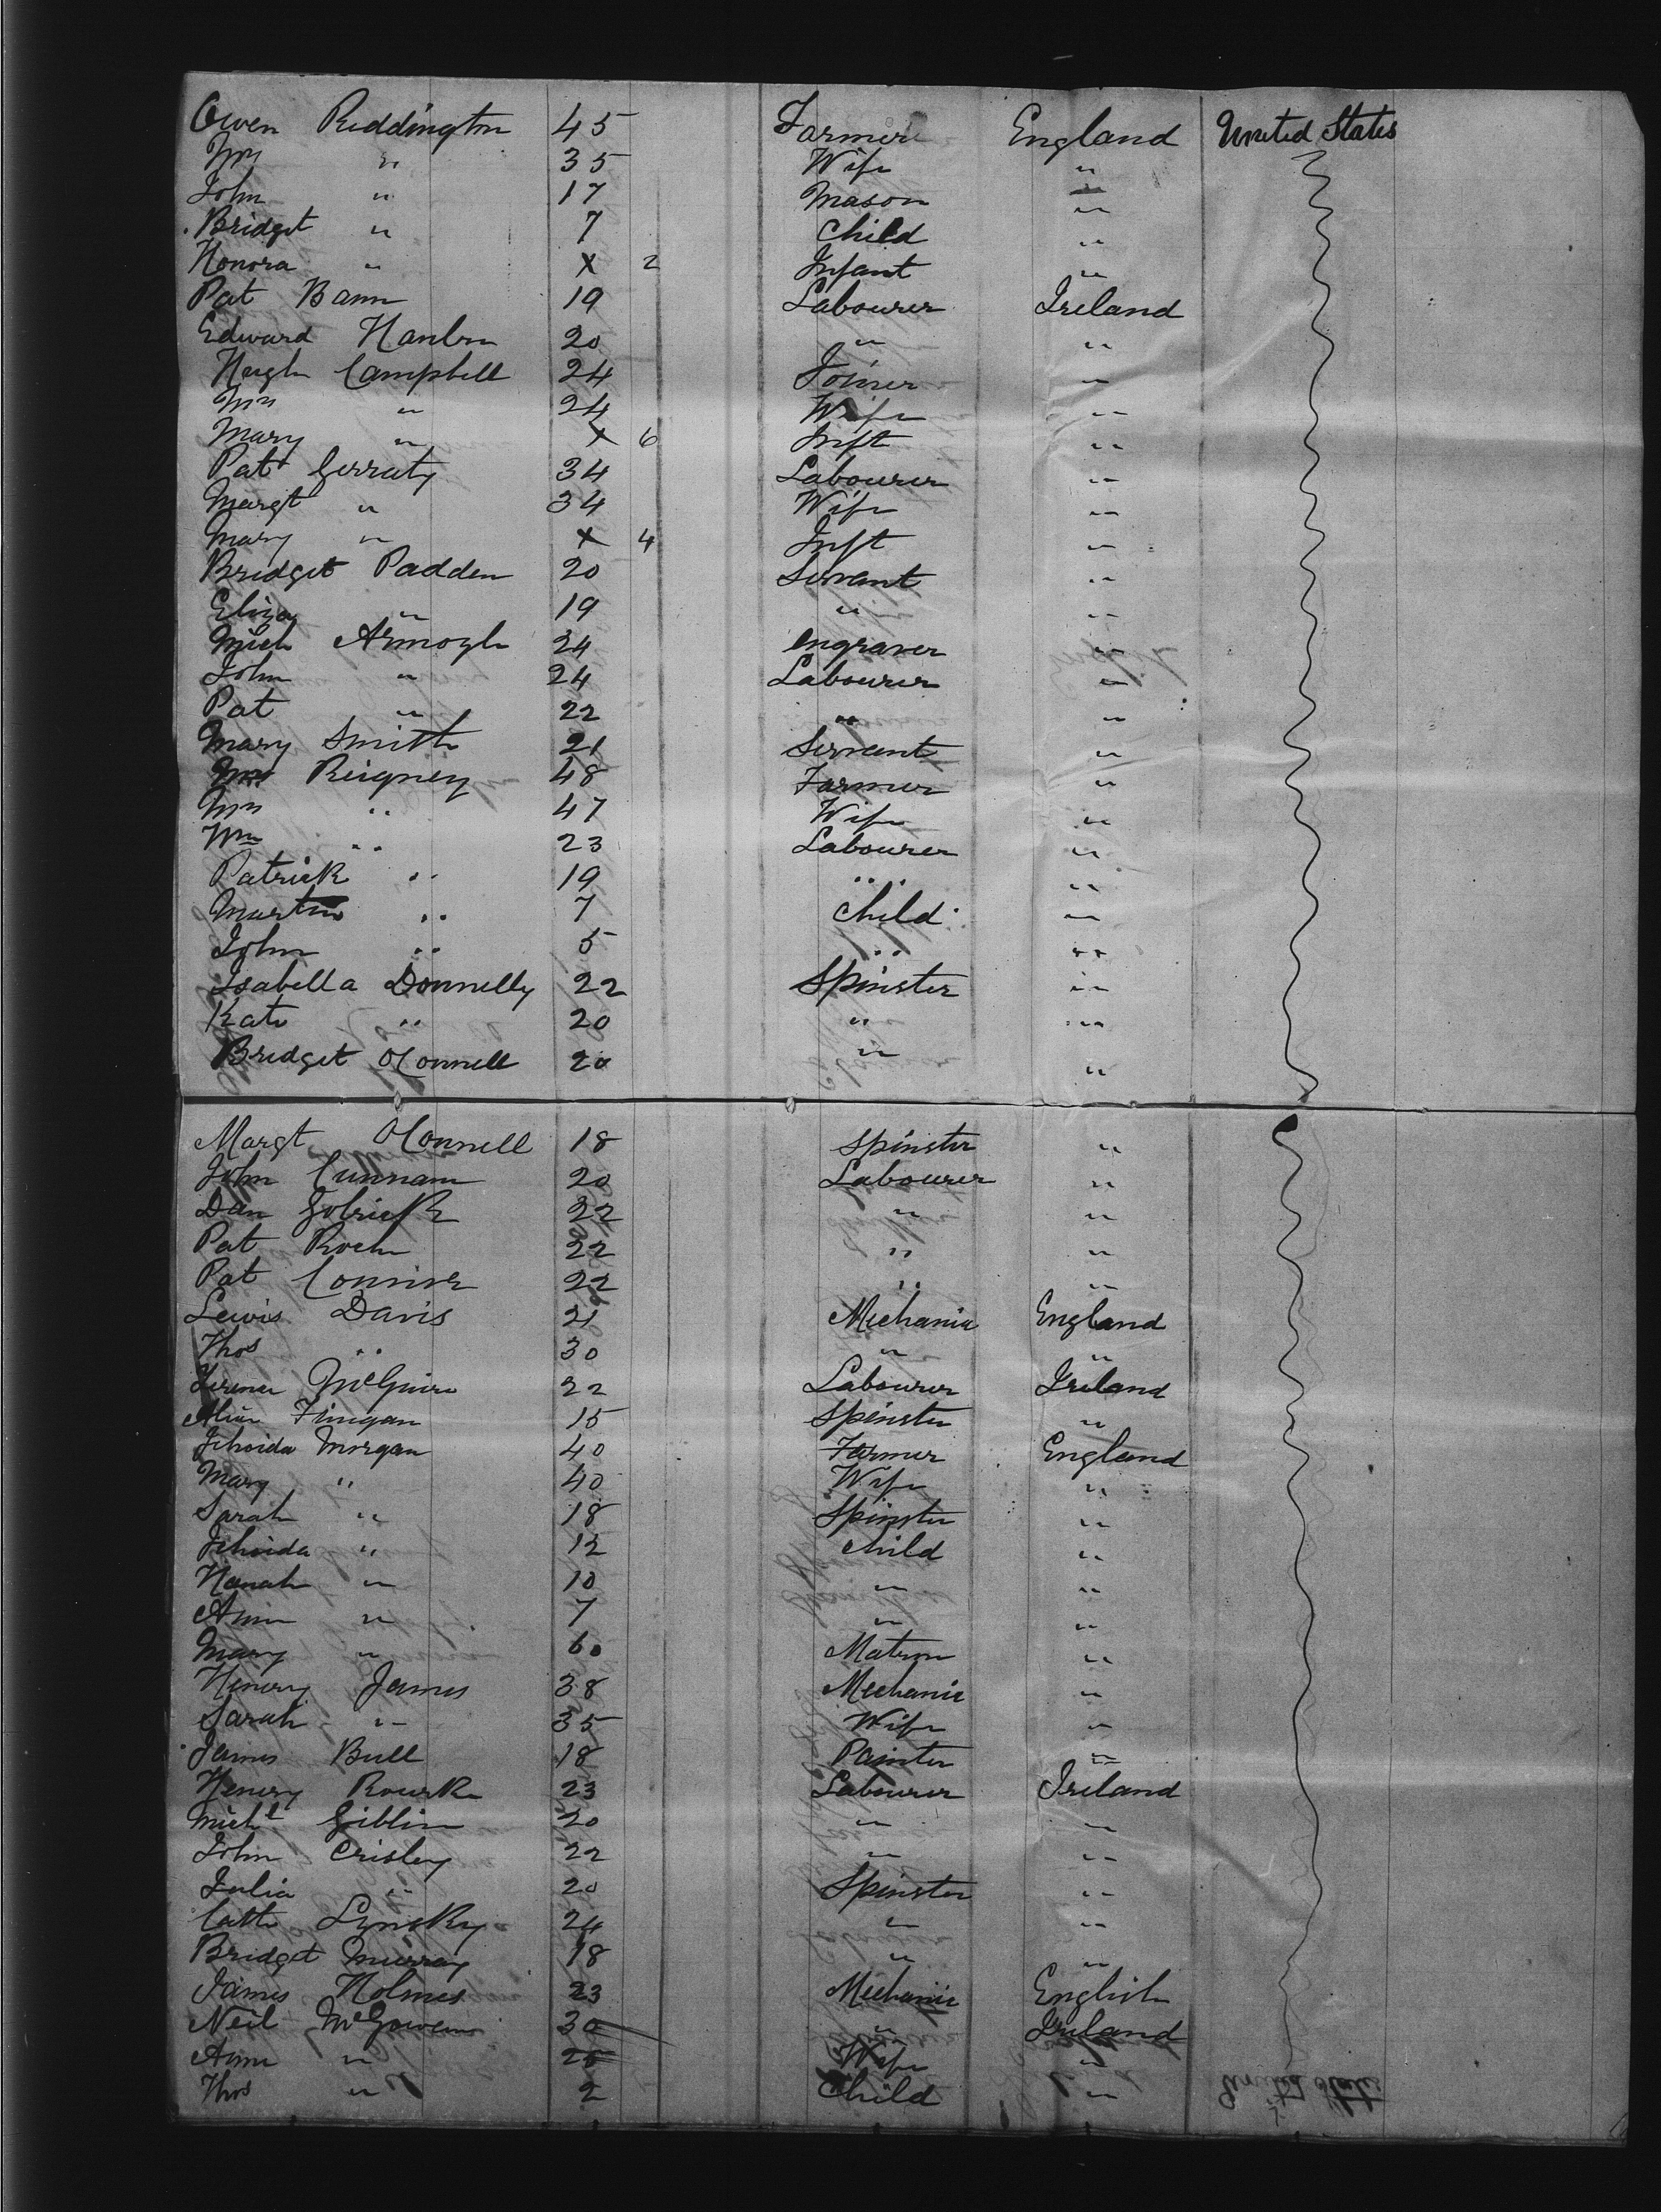 Owen Riddington 45 Farmer England United States
Mrs " 35 Wife "
John " 17 Mason "
Bridget " 7 Child "
Honora " X 2 Infant "
Pat Bann 19 Labourer Ireland
Edward Hanlon 20 " "
Hugh Campbell 24 Joiner "
Mrs " 24 Wife "
Mary " X 6 Inft "
Pat Gerraty 34 Labourer "
Margt " 34 Wife "
Mary " X 4 Inft "
Bridget Padden 20 Servant "
Eliza " 19 " "
Mich Armogh 24 engraver "
John " 24 Labourer "
Pat " 22 " "
Mary Smith 21 Servant "
Reigney 48 Farmer "
Mrs " 47 Wife "
Wm " 23 Labourer "
Patrick " 19 " "
Martin 7 Child "
John " 5 " "
Isabella Donnelly 22 Spinster "
Kate " 20 " "
Bridget OConnell 20 " "
Margt OConnell 18 Spinster "
John Cunnam 20 Labourer "
Dan Golrick 22 " "
Pat Roche 22 " "
Pat 22 " "
Lewis Davis 21 Mechanic England
Thos " 30 " "
McGuire 22 Labourer Ireland
Alice Finigan 15 Spinster "
Jehoida Morgan 40 Farmer England
Mary " 40 Wife "
Sarah " 18 Spinster "
Jehoida " 12 Child "
Hanah " 10 " "
Ann " 7 " "
Mary " 60 Matron "
Henery James 38 Mechanic "
Sarah " 35 Wife "
James Bull 18 Painter "
Henery Rourke 23 Labourer Ireland
Michl Giblin 20 " "
John Crisley 22 " "
Julia " 20 Spinster "
Cath Lynsky 24 " "
Bridget Murray 18 " "
James Holmes 23 Mechanic English
Neil McGowen 30 " Ireland
Ann " 25 Wife "
Thos " 2 Child "